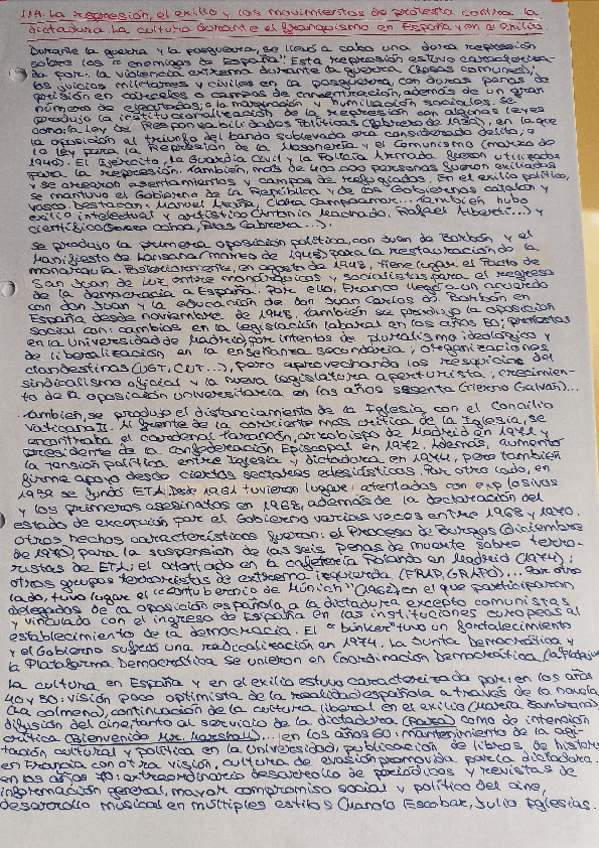 11.4. La represión, el exilio y los movimientos de protesta contra la
dictadura. La cultura durante el franquismo en España y en el exilio.
Durante la guerra y la posguerra, se llevó a cabo una dura represión
sobre los "enemigos de España". Esta represión estuvo caracteriza-
da por: la violencia extrema durante la guerra (fosas comunes),
los juicios militares y civiles en la posguerra, con duras penas de
prisión en cárceles o campos de concentración, además de un gran
número de ejecutados; o la marginación y humillación sociales. Se
produjo la institucionalización de la represión con algunas leyes
como: la Ley de Responsabilidades Políticas (febrero de 1939), en la que
la oposición al triunfo del bando sublevado era considerado delito; o
la ley para la Represión de la Masonería y el Comunismo (marzo de
1940). El Ejército, la Guardia Civil y la Policía Armada fueron utilizados
para la represión. También, más de 400.000 personas fueron exiliadas
y se crearon asentamientos y campos de refugiados. En el exilio político,
se mantuvo el Gobierno de la República y de los Gobiernos catalán y
vasco. Destacan: Manuel Azaña, Clara Campoamor... También hubo
exilio intelectual y artístico (Antonio Machado, Rafael Alberti...) y
científico (Severo Ochoa, Blas Cabrera...).
Se produjo la primera oposición política, con Juan de Borbón y el
Manifiesto de Lausana (marzo de 1945) para la restauración de la
monarquía. Posteriormente, en agosto de 1948, tiene lugar el Pacto de
San Juan de Luz entre monárquicos y socialistas para el regreso
de la democracia a España. Por ello, Franco llegó a un acuerdo
con don Juan y la educación de don Juan Carlos de Borbón en
España desde noviembre de 1948. También se produjo la oposición
social con: cambios en la legislación laboral en los años 50; protestas
en la Universidad de Madrid por intentos de pluralismo ideológico y
de liberalización en la enseñanza secundaria; organizaciones
clandestinas (UGT, CNT...), pero aprovechando los resquicios del
sindicalismo oficial y la nueva legislatura aperturista; crecimien-
to de la oposición universitaria en los años sesenta (Tierno Galván)...
También, se produjo el distanciamiento de la Iglesia, con el Concilio
Vaticano II. Al frente de la corriente más crítica de la Iglesia, se
encontraba el cardenal Tarancón, arzobispo de Madrid en 1971 y
presidente de la Confederación Episcopal en 1972. Además, aumentó
la tensión política entre Iglesia y dictadura en 1974, pero también
firme apoyo desde ciertos sectores eclesiásticos. Por otro lado, en
1959 se fundó ETA. Desde 1961 tuvieron lugar atentados con explosivos
y los primeros asesinatos en 1968, además de la declaración del
estado de excepción por el Gobierno varias veces entre 1968 y 1970.
Otros hechos característicos fueron: el Proceso de Burgos (diciembre
de 1970), para la suspensión de las seis penas de muerte sobre terro-
ristas de ETA; el atentado en la cafetería Rolando en Madrid (1974);
otros grupos terroristas de extrema izquierda (FRAP, GRAPO)... Por otro
lado, tuvo lugar el "contubernio de Múnich" (1962) en el que participaron
delegados de la oposición española a la dictadura excepto comunistas
y vinculado con el ingreso de España en las instituciones europeas al
establecimiento de la democracia. El "búnker" tuvo un fortalecimiento
y el Gobierno sufrió una radicalización en 1974. La Junta Democrática y
la Plataforma Democrática se unieron en Coordinación Democrática
La cultura en España y en el exilio estuvo caracterizada por: en los años
40 y 50: visión poco optimista de la realidad española a través de la novela
(La colmena), continuación de la cultura liberal en el exilio (María Zambrano),
difusión del cine, tanto al servicio de la dictadura (Raza) como de intención
crítica (Bienvenido Mr. Marshall)... en los años 60: mantenimiento de la agi-
tación cultural y política en la Universidad, publicación de libros de historia
en Francia con otra visión, cultura de evasión promovida por la dictadura.
en los años 70: extraordinario desarrollo de periódicos y revistas de
información general, mayor compromiso social y político del cine,
desarrollo musical en múltiples estilos (Manolo Escobar, Julio Iglesias.